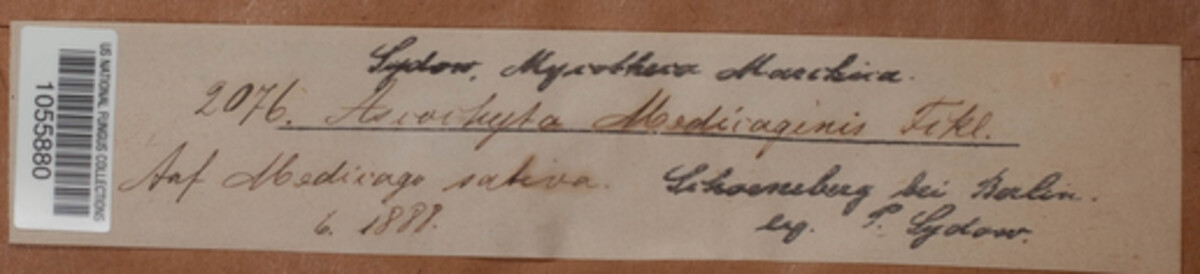 US NATIONAL FUNGUS COLLECTIONS
1055880
Sydow, Mycotheca Marchica.
2076. Ascochyta Medicaginis Fckl.
Auf Medicago sativa. Schoeneberg bei Berlin.
6. 1888. leg. P. Sydow.